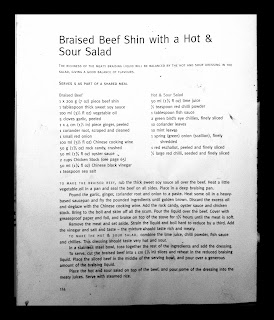 Braised Beef Shin with a Hot &
Sour Salad
THE RICHNESS OF THE MEATY BRAISING LIQUID WILL BE BALANCED BY THE HOT AND SOUR DRESSING IN THE
SALAD, GIVING A GOOD BALANCE OF FLAVOURS.
SERVES 4 AS PART OF A SHARED MEAL
Braised Beef
1 x 200 g (7 oz) piece beef shin
1 tablespoon thick sweet soy sauce
100 ml (3½ fl oz) vegetable oil
2 cloves garlic, peeled
1 x 4 cm (1½ in) piece ginger, peeled
1 coriander root, scraped and cleaned
1 small red onion
100 ml (3½ fl oz) Chinese cooking wine
50 g (1¾ oz) rock candy, crushed
50 ml (1¾ fl oz) oyster sauce
2 cups Chicken Stock (see page 65)
50 ml (1¾ fl oz) Chinese black vinegar
1 teaspoon sea salt
Hot & Sour Salad
50 ml (1¾ fl oz) lime juice
½ teaspoon red chilli powder
1 tablespoon fish sauce
2 green bird's eye chillies, finely sliced
10 coriander leaves
10 mint leaves
1 spring (green) onion (scallion), finely
shredded
1 red eschallot, peeled and finely sliced
½ large red chilli, seeded and finely sliced
TO MAKE THE BRAISED BEEF, rub the thick sweet soy sauce all over the beef. Heat a little
vegetable oil in a pan and seal the beef on all sides. Place in a deep braising pan.
Pound the garlic, ginger, coriander root and onion to a paste. Heat some oil in a heavy-
based saucepan and fry the pounded ingredients until golden brown. Discard the excess oil
and deglaze with the Chinese cooking wine. Add the rock candy, oyster sauce and chicken
stock. Bring to the boil and skim off all the scum. Pour the liquid over the beef. Cover with
greaseproof paper and foil, and braise on top of the stove for 1½ hours until the meat is soft.
Remove the meat and set aside. Strain the liquid and boil hard to reduce by a third. Add
the vinegar and salt and taste – the mixture should taste rich and meaty.
TO MAKE THE HOT & SOUR SALAD, combine the lime juice, chilli powder, fish sauce
and chillies. This dressing should taste very hot and sour.
In a stainless steel bowl, toss together the rest of the ingredients and add the dressing.
To serve, cut the braised beef into 1 cm (½ in) slices and reheat in the reduced braising
liquid. Place the sliced beef in the middle of the serving bowl, and pour over a generous
amount of the braising liquid.
Place the hot and sour salad on top of the beef, and pour some of the dressing into the
meaty juices. Serve with steamed rice.